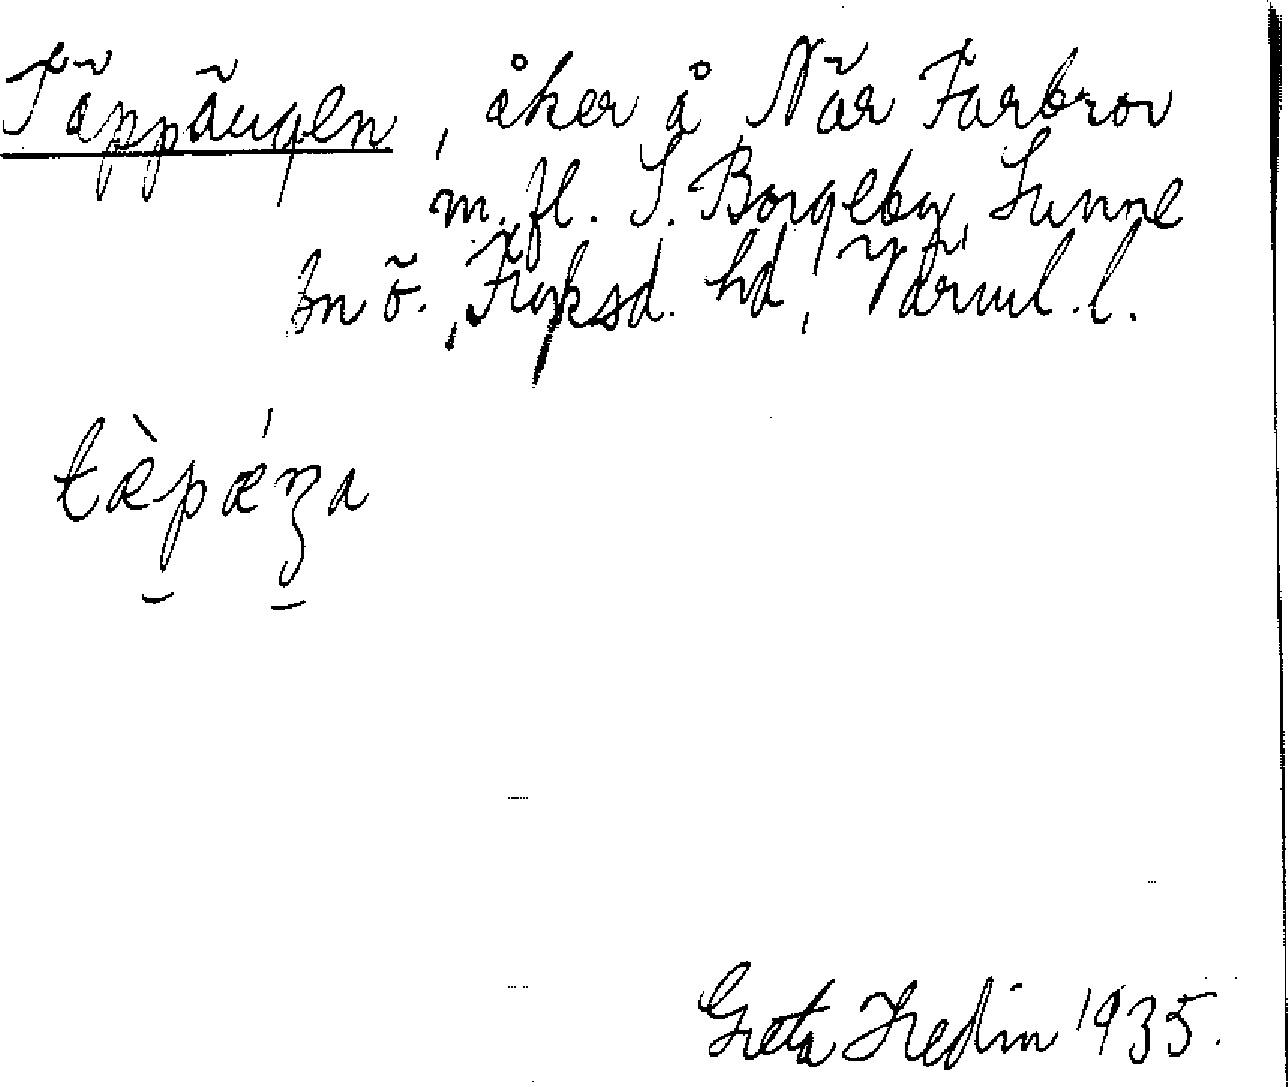 Täppängen, åker å När Farbrov
m. fl. S. Borgeby, Sunne
sn ö., Fryksd. hd, Värml. l.
tæ̀pǽŋa
Greta Hedin 1935.